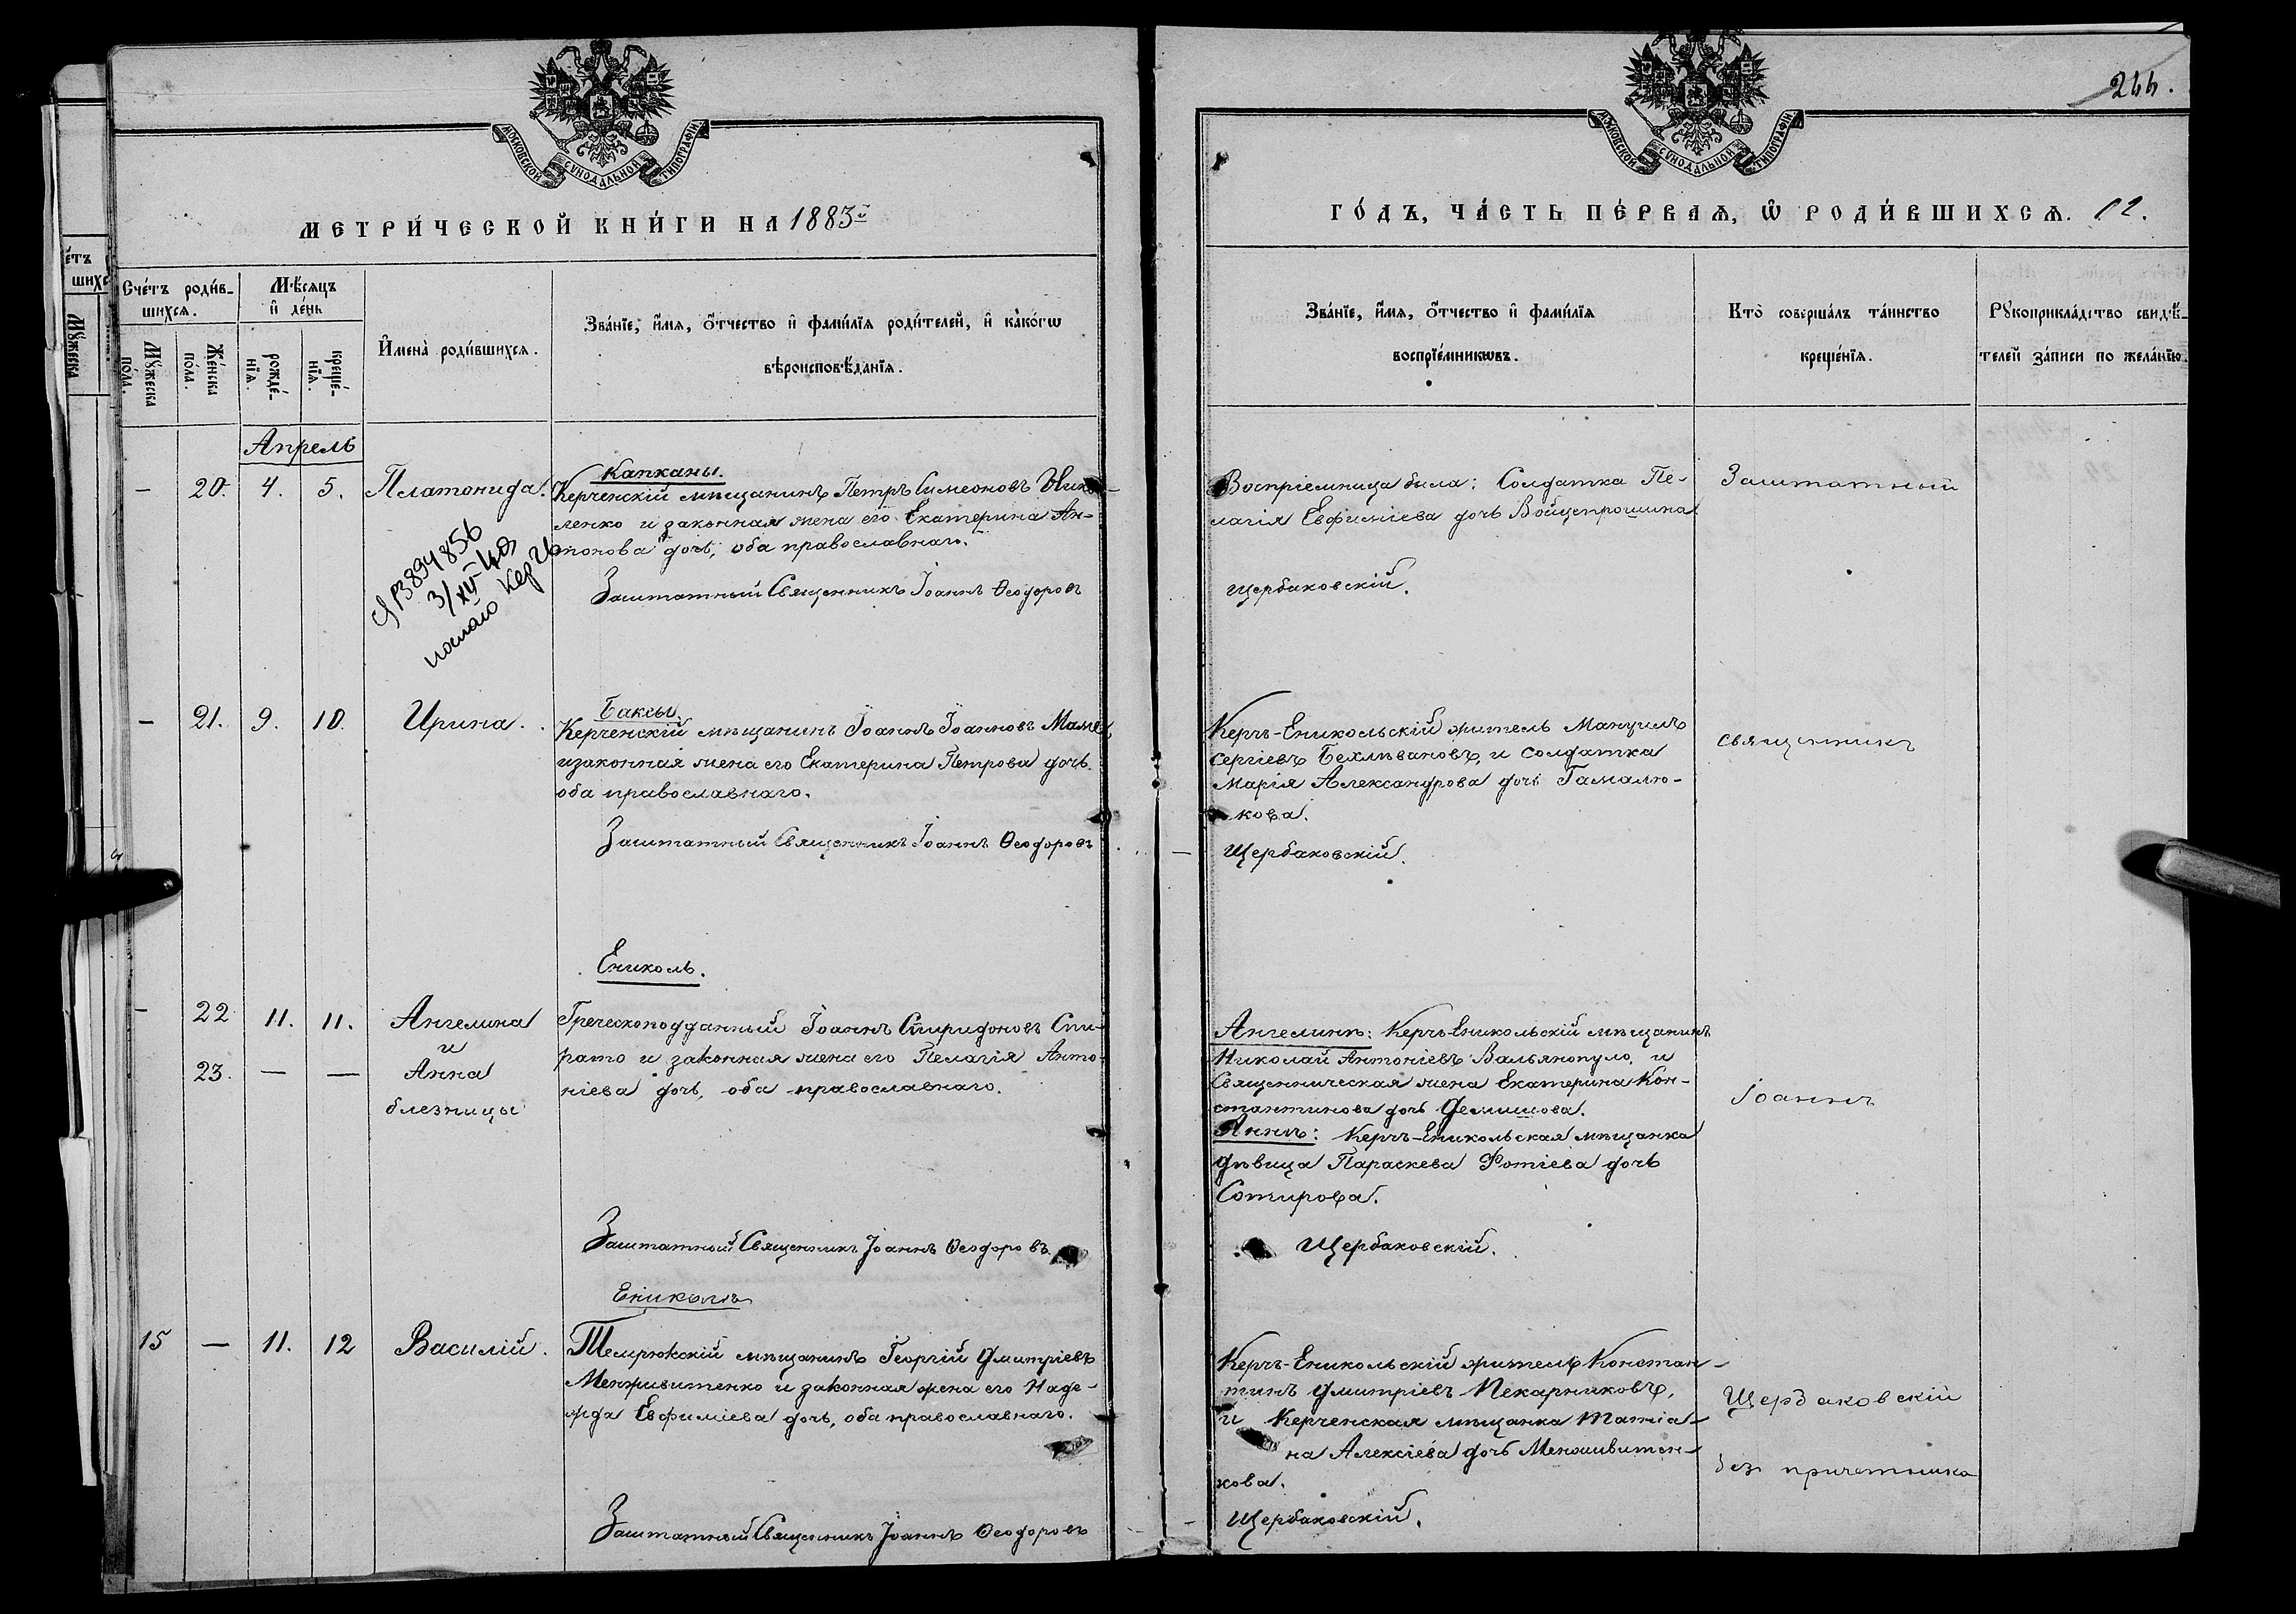 244.
МОСКОВСКОЙ СѴНОДАЛЬНОЙ ТИПОГРАФІИ
МОСКОВСКОЙ СѴНОДАЛЬНОЙ ТИПОГРАФІИ
МЕТРИ́ЧЕСКОЙ КНИ́ГИ НА 1883й
ГО́ДЪ, ЧА́СТЬ ПЕ́РВАѦ, Ѿ РОДИ́ВШИХСѦ. 12.
Сче́тъ роди́в-
шихсѧ.
Мѣ́сѧцъ
и҆ де́нь
Мꙋ́жеска
по́ла.
Же́нска
по́ла.
рожде́-
нїѧ.
креще́-
нїѧ.
И҆мена̀ роди́вшихсѧ.
Зва́нїе, и҆́мѧ, ѻ҆́тчество и҆ фами́лїѧ роди́телей, и҆ како́гѡ
вѣроисповѣ́данїѧ.
Зва́нїе, и҆́мѧ, ѻ҆́тчество и҆ фами́лїѧ
воспрїе́мникѡвъ.
Кто̀ соверша́лъ та́инство
креще́нїѧ.
Рꙋкоприкла́дство свидѣ́-
телей за́писи по жела́нїю.
Апрель
— 20. 4. 5. Платонида.
Капканы.
Керченскій мѣщанинъ Петръ Симеоновъ
ленко и законная жена его Екатерина Ан-
тонова дочь, оба православнаго.
Заштатный Священникъ Іоаннъ Ѳеодоровъ
Воспріемница была: Солдатка Пе-
лагія Евфиміева дочь Войцепрошина
Щербаковскій.
Заштатный
3/XII-40
Керчь
— 21. 9. 10. Ирина.
Баксы
Керченскій мѣщанинъ Іоаннъ Іоанновъ
изаконная жена его Екатерина Петрова дочь.
оба православнаго.
Заштатный Священникъ Іоаннъ Ѳеодоровъ
Керчь-Еникольскій житель Мануилъ
Сергіевъ Бехлѣвановъ, и солдатка
Марія Александрова дочь Гамалю-
кова.
Щербаковскій.
священникъ
Ениколь.
— 22 11. 11. Ангелина
и
23. — — Анна
близницы
Греческоподданный Іоаннъ Спиридоновъ Спи-
рато и законная жена его Пелагія Анто-
ніева дочь, оба православнаго.
Заштатный Священникъ Іоаннъ Ѳеодоровъ
Ангелинѣ: Керчь-Еникольскій мѣщанинъ
Николай Антоніевъ Вальянопуло, и
Священническая жена Екатерина Кон-
стантинова дочь Демишова.
Аннѣ: Керчь-Еникольская мѣщанка
дѣвица Параскева Фотіева дочь
Сотирова.
Щербаковскій.
Іоаннъ
Ениколь
15 — 11. 12 Василій.
Темрюкскій мѣщанинъ Георгій Дмитріевъ
Менживитенко и законная жена его Наде-
жда Евфиміева дочь, оба православнаго.
Заштатный Священникъ Іоаннъ Ѳеодоровъ
Керчь-Еникольскій житель Констан-
тинъ Дмитріевъ Пекарниковъ,
и Керченская мѣщанка Татіа-
на Алексіева дочь Меншивитен-
кова.
Щербаковскій.
Щербаковскій
без причетника